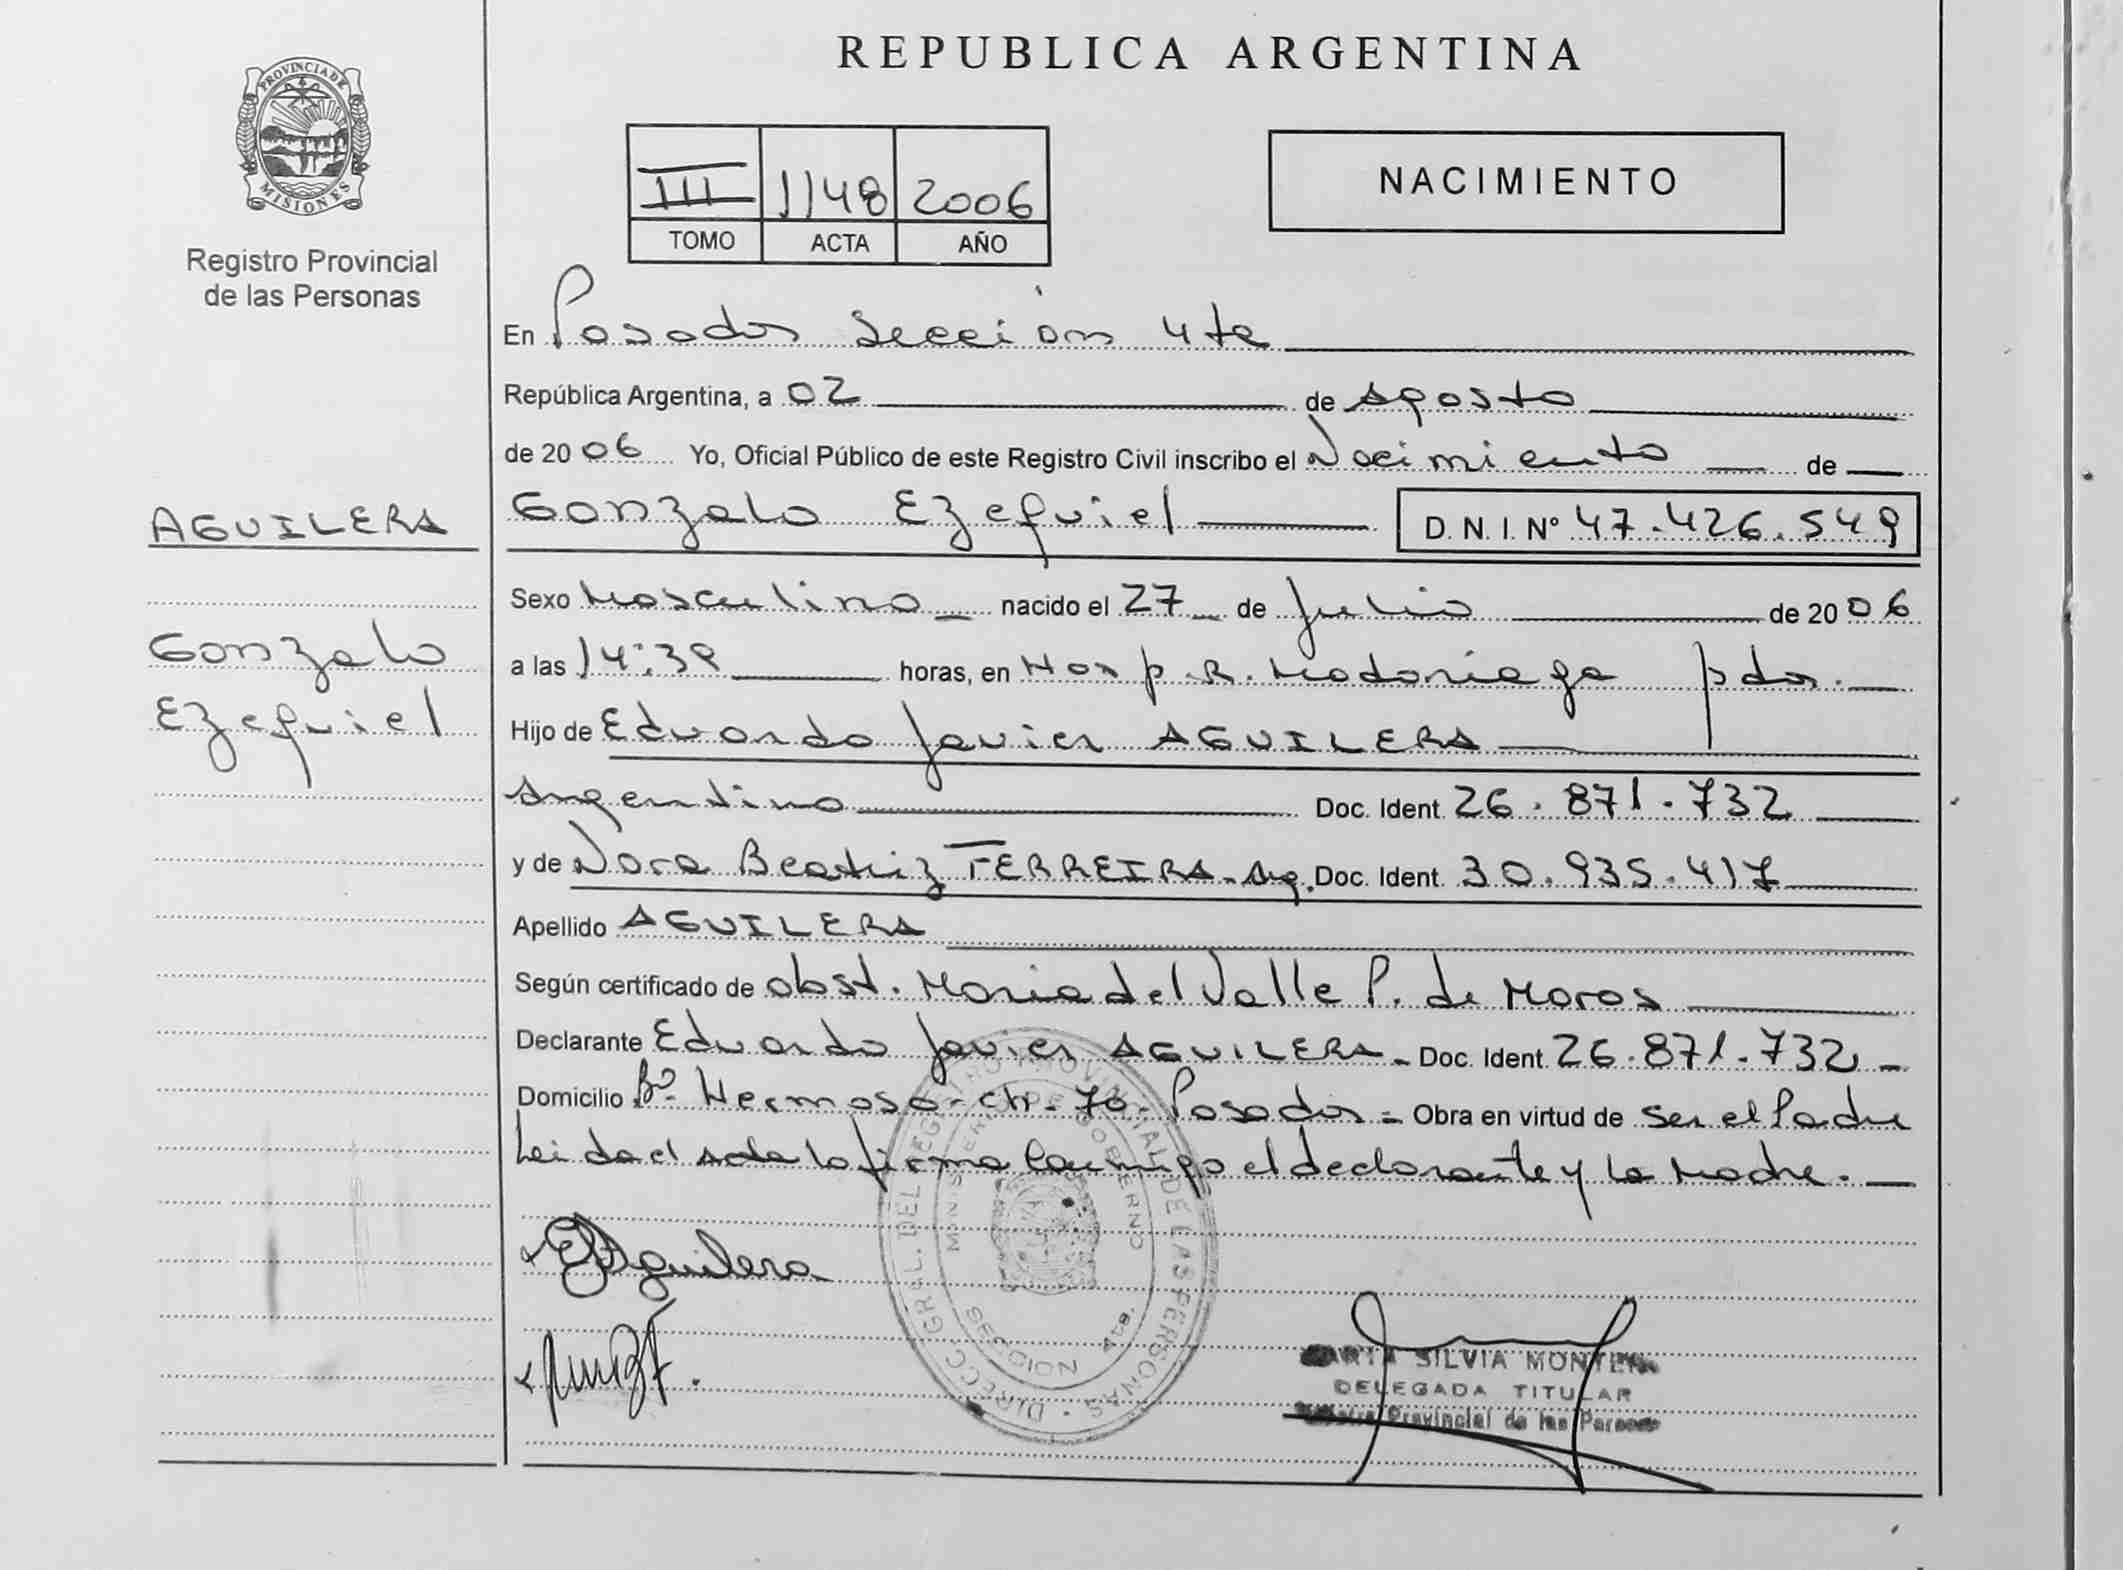 REPUBLICA ARGENTINA
PROVINCIA DE MISIONES
Registro Provincial
de las Personas
III 1148 2006
TOMO ACTA AÑO
NACIMIENTO
En Posadas Sección 4ta
República Argentina, a 02 de Agosto
de 2006 Yo, Oficial Público de este Registro Civil inscribo el Nacimiento de
AGUILERA
Gonzalo Ezequiel D. N. I. Nº 47.426.549
Sexo Masculino nacido el 27 de Julio de 2006
Gonzalo
a las 14:39 horas, en Hosp. R. Madariaga pdas.
Ezequiel
Hijo de Eduardo Javier AGUILERA
Argentino Doc. Ident. 26.871.732
y de Nora Beatriz FERREIRA - Arg. Doc. Ident. 30.935.417
Apellido AGUILERA
Según certificado de obst. Maria del Valle P. de Moros
Declarante Eduardo Javier AGUILERA - Doc. Ident. 26.871.732 -
Domicilio Bº Hermoso - ch. 70 - Posadas - Obra en virtud de ser el Padre
Leida el acta la firma conmigo el declarante y la Madre. -
EJAguilera
DIRECC. GRAL. DEL REGISTRO PROVINCIAL DE LAS PERSONAS
MINISTERIO DE GOBIERNO
SECCION 4ta.
SILVIA
DELEGADA TITULAR
Provincial de las